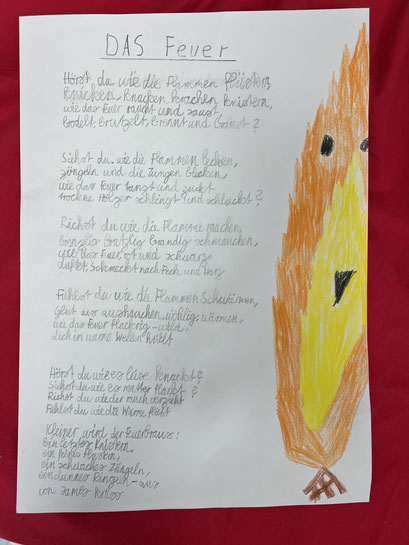 DAS Feuer
Hörst du wie die Flammen flüstern,
Knicken, Knacken, Krachen Knistern,
wie das Feuer rauscht und saust,
brodelt, brutzelt, brennt und braust?
Siehst du, wie die Flammen lecken,
züngeln und die Zungen blecken,
wie das Feuer tanzt und zuckt
trockne Hölzer schlingt und schluckt?
Riechst du wie die Flamme rauchen,
brenzlig brutzlig brandig schmauchen,
wie das Feuer, rot und schwarz,
duftet, Schmeckst nach Pech und Harz
Fühlst du wie die Flammen Schwärmen,
Glut aushauchen wohlig wärmen,
wie das feuer flackrig-wild,
dich in warme Wellen hüllt
Hörst du wie es leise Knackt?
Siehst du wie es matter flackt?
Riechst du wie der rauch verzieht
Fühlst du wie die Wärme flieht
Kleiner wird der Feuerbraus:
Ein letztes knistern,
ein feines flüstern,
ein schwaches züngeln,
ein dünnes Ringeln - aus
von James Krüss